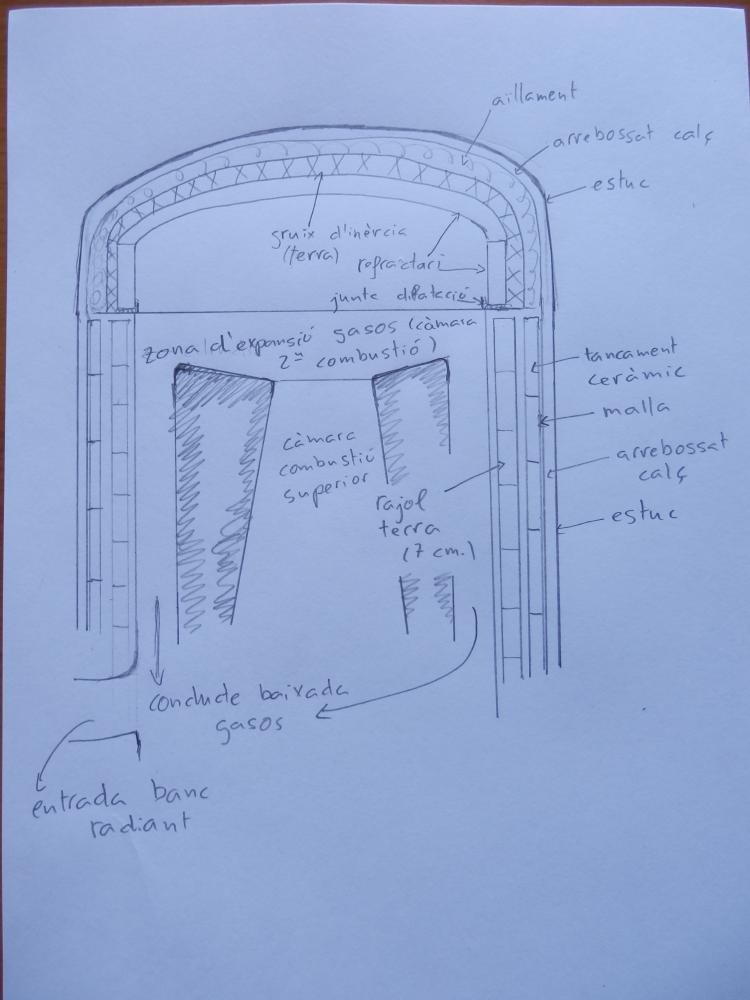 aïllament
arrebossat calç
estuc
gruix d'inèrcia
(terra)
refractari
junta dilatació
zona d'expansió gasos (càmara
2ª combustió)
càmara
combustió
superior
tancament
ceràmic
malla
arrebossat
calç
estuc
rajol
terra
(7 cm.)
conducte baixada
gasos
entrada banc
radiant